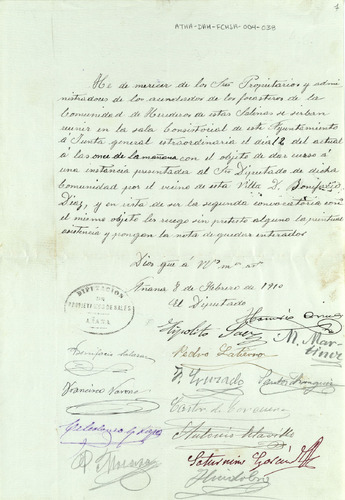 ATHA-DAH-FCHSA-004-038
He de merecer de los Sres Propietarios y admi-
nistradores de los arrendados de los forasteros de la
Comunidad de Herederos de estas Salinas se sirvan
reunir en la sala Consistorial de este Ayuntamiento
á Junta general extraordinaria el dia 12 del actual
á las once de la mañana con el objeto de dar curso á
una instancia presentada al Sr Diputado de dicha
Comunidad por el vecino de esta Villa D. Bonifacio
Diez, y en vista de ser la segunda convocatoria con
el mismo objeto les ruego sin pretesto alguno la puntual
asistencia y pongan la nota de quedar enterados
Dios gue á
Añana 8 de Febrero de 1910
El Diputado
DIPUTACION
DE
PROPIETARIOS DE SALES
AÑANA
Hipolito Saez
M. Martinez
Pedro
Francisco
Saturnino Garcia